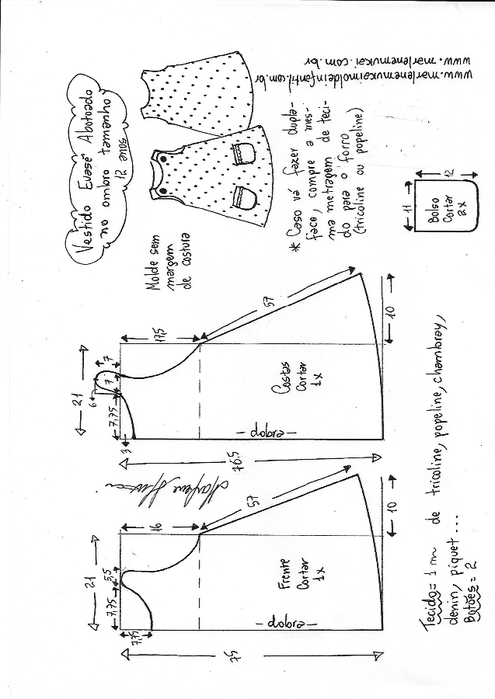 Vestido Evasê Abotoado
no ombro tamanho
12 anos
www.marlenemukaimoldeinfantil.com.br
www.marlenemukai.com.br
Molde sem
margem
de costura
* Caso vá fazer dupla-
face, compre a mes-
ma metragem de teci-
do para o forro
(tricoline ou popeline)
12
11
Bolso
Cortar
2x
17,5
57
10
21
7
7
6
7,75
3
Costas
Cortar
1x
- dobra -
76,5
16
57
10
21
5,5
7,75
7,75
Frente
Cortar
1x
- dobra -
75
Tecido = 1 m de tricoline, popeline, chambray,
denin, piquet ...
Botões = 2